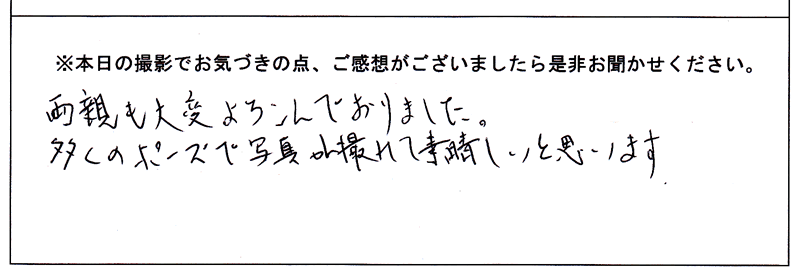 ※本日の撮影でお気づきの点、ご感想がございましたら是非お聞かせください。
両親も大変よろこんでおりました。
多くのポーズで写真が撮れて素晴しいと思います